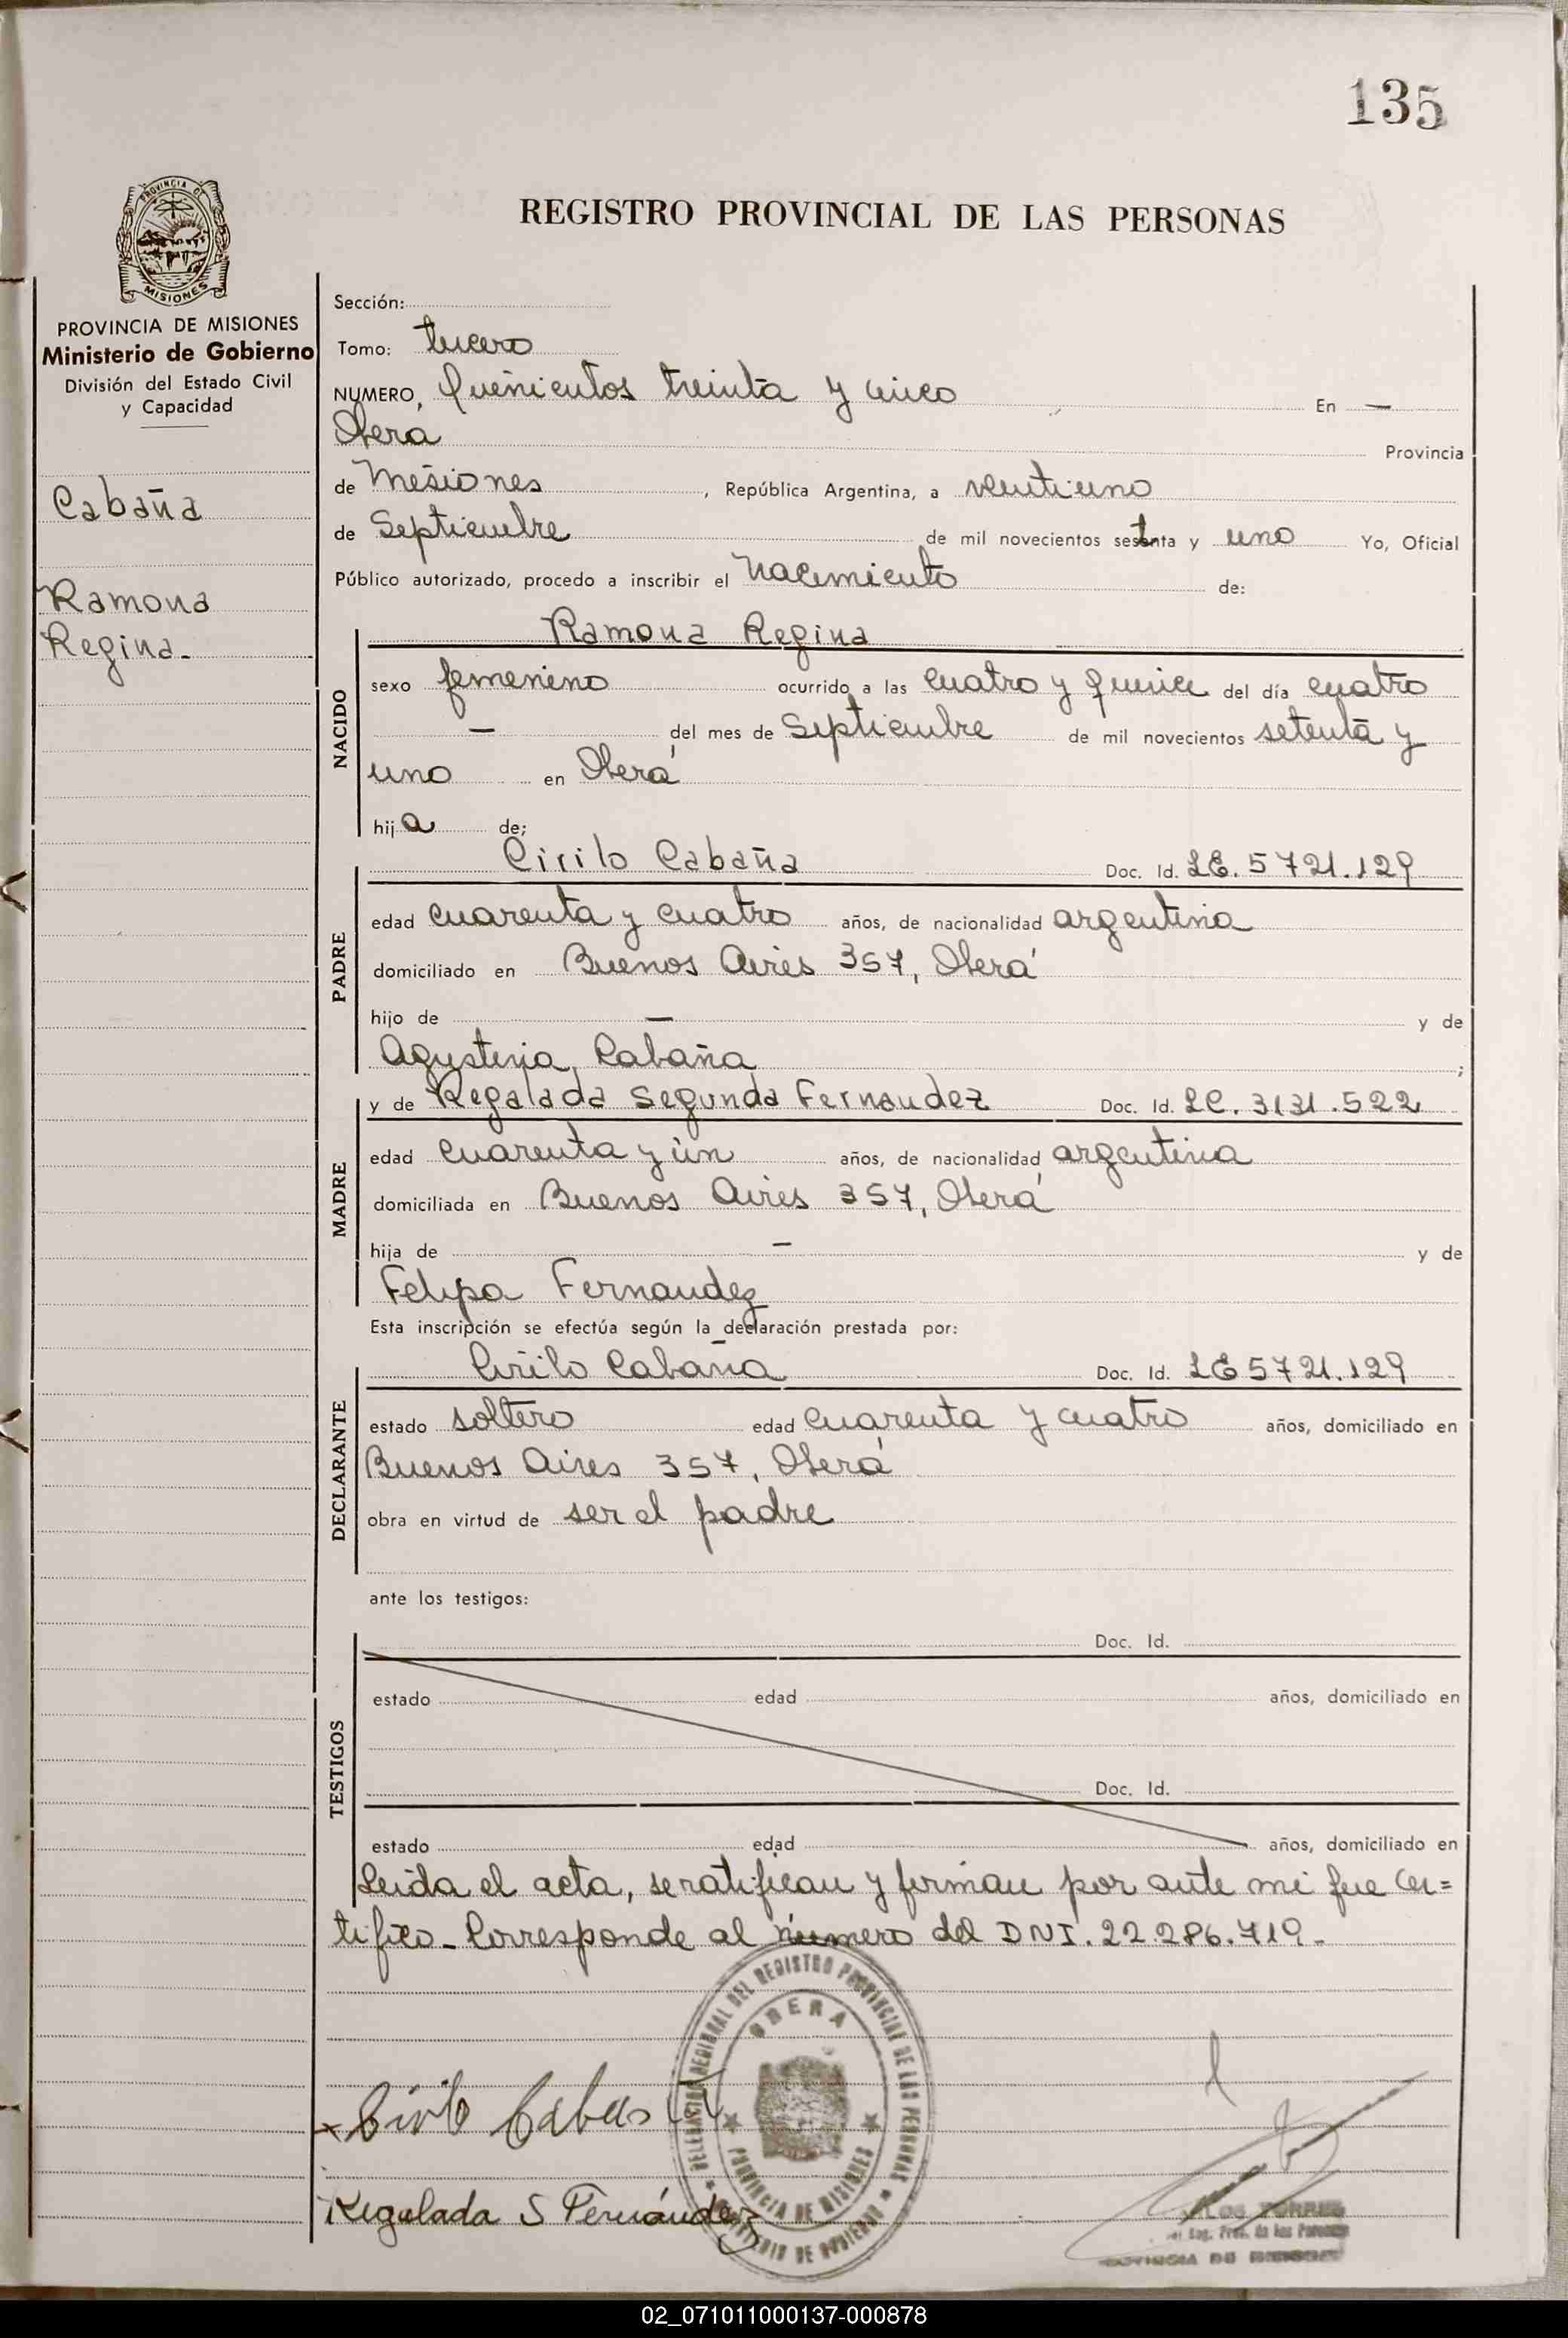 135
PROVINCIA DE
MISIONES
REGISTRO PROVINCIAL DE LAS PERSONAS
PROVINCIA DE MISIONES
Ministerio de Gobierno
División del Estado Civil
y Capacidad
Cabaña
Ramona
Regina-
Sección:
Tomo: tercero
NUMERO, Quinientos treinta y cinco En —
Oberá Provincia
de Misiones, República Argentina, a veintiuno
de Septiembre de mil novecientos setenta y uno Yo, Oficial
Público autorizado, procedo a inscribir el nacimiento de:
NACIDO
Ramona Regina
sexo femenino ocurrido a las cuatro y quince del día cuatro
— del mes de Septiembre de mil novecientos setenta y
uno en Oberá
hija de;
PADRE
Cirilo Cabaña Doc. Id. LE. 5721.129
edad cuarenta y cuatro años, de nacionalidad argentina
domiciliado en Buenos Aires 357, Oberá
hijo de — y de
Agustina Cabaña ;
MADRE
y de Regalada Segunda Fernandez Doc. Id. LC. 3131.522
edad cuarenta y un años, de nacionalidad argentina
domiciliada en Buenos Aires 357, Oberá
hija de — y de
Felipa Fernandez
Esta inscripción se efectúa según la declaración prestada por:
DECLARANTE
Cirilo Cabaña Doc. Id. LE 5721.129
estado soltero edad cuarenta y cuatro años, domiciliado en
Buenos Aires 357, Oberá
obra en virtud de ser el padre
ante los testigos:
TESTIGOS
Doc. Id.
estado edad años, domiciliado en
Doc. Id.
estado edad años, domiciliado en
Leida el acta, se ratifican y firman por ante mi que cer=
tifico- Corresponde al número del DNI. 22.286.719-
DELEGACION REGIONAL DEL REGISTRO PROVINCIAL DE LAS PERSONAS
OBERA
PROVINCIA DE MISIONES
MINISTERIO DE GOBIERNO
Cirilo Cabaña
Regalada S Fernández
TORRES
Prov. de las Personas
PROVINCIA DE MISIONES
02_071011000137-000878